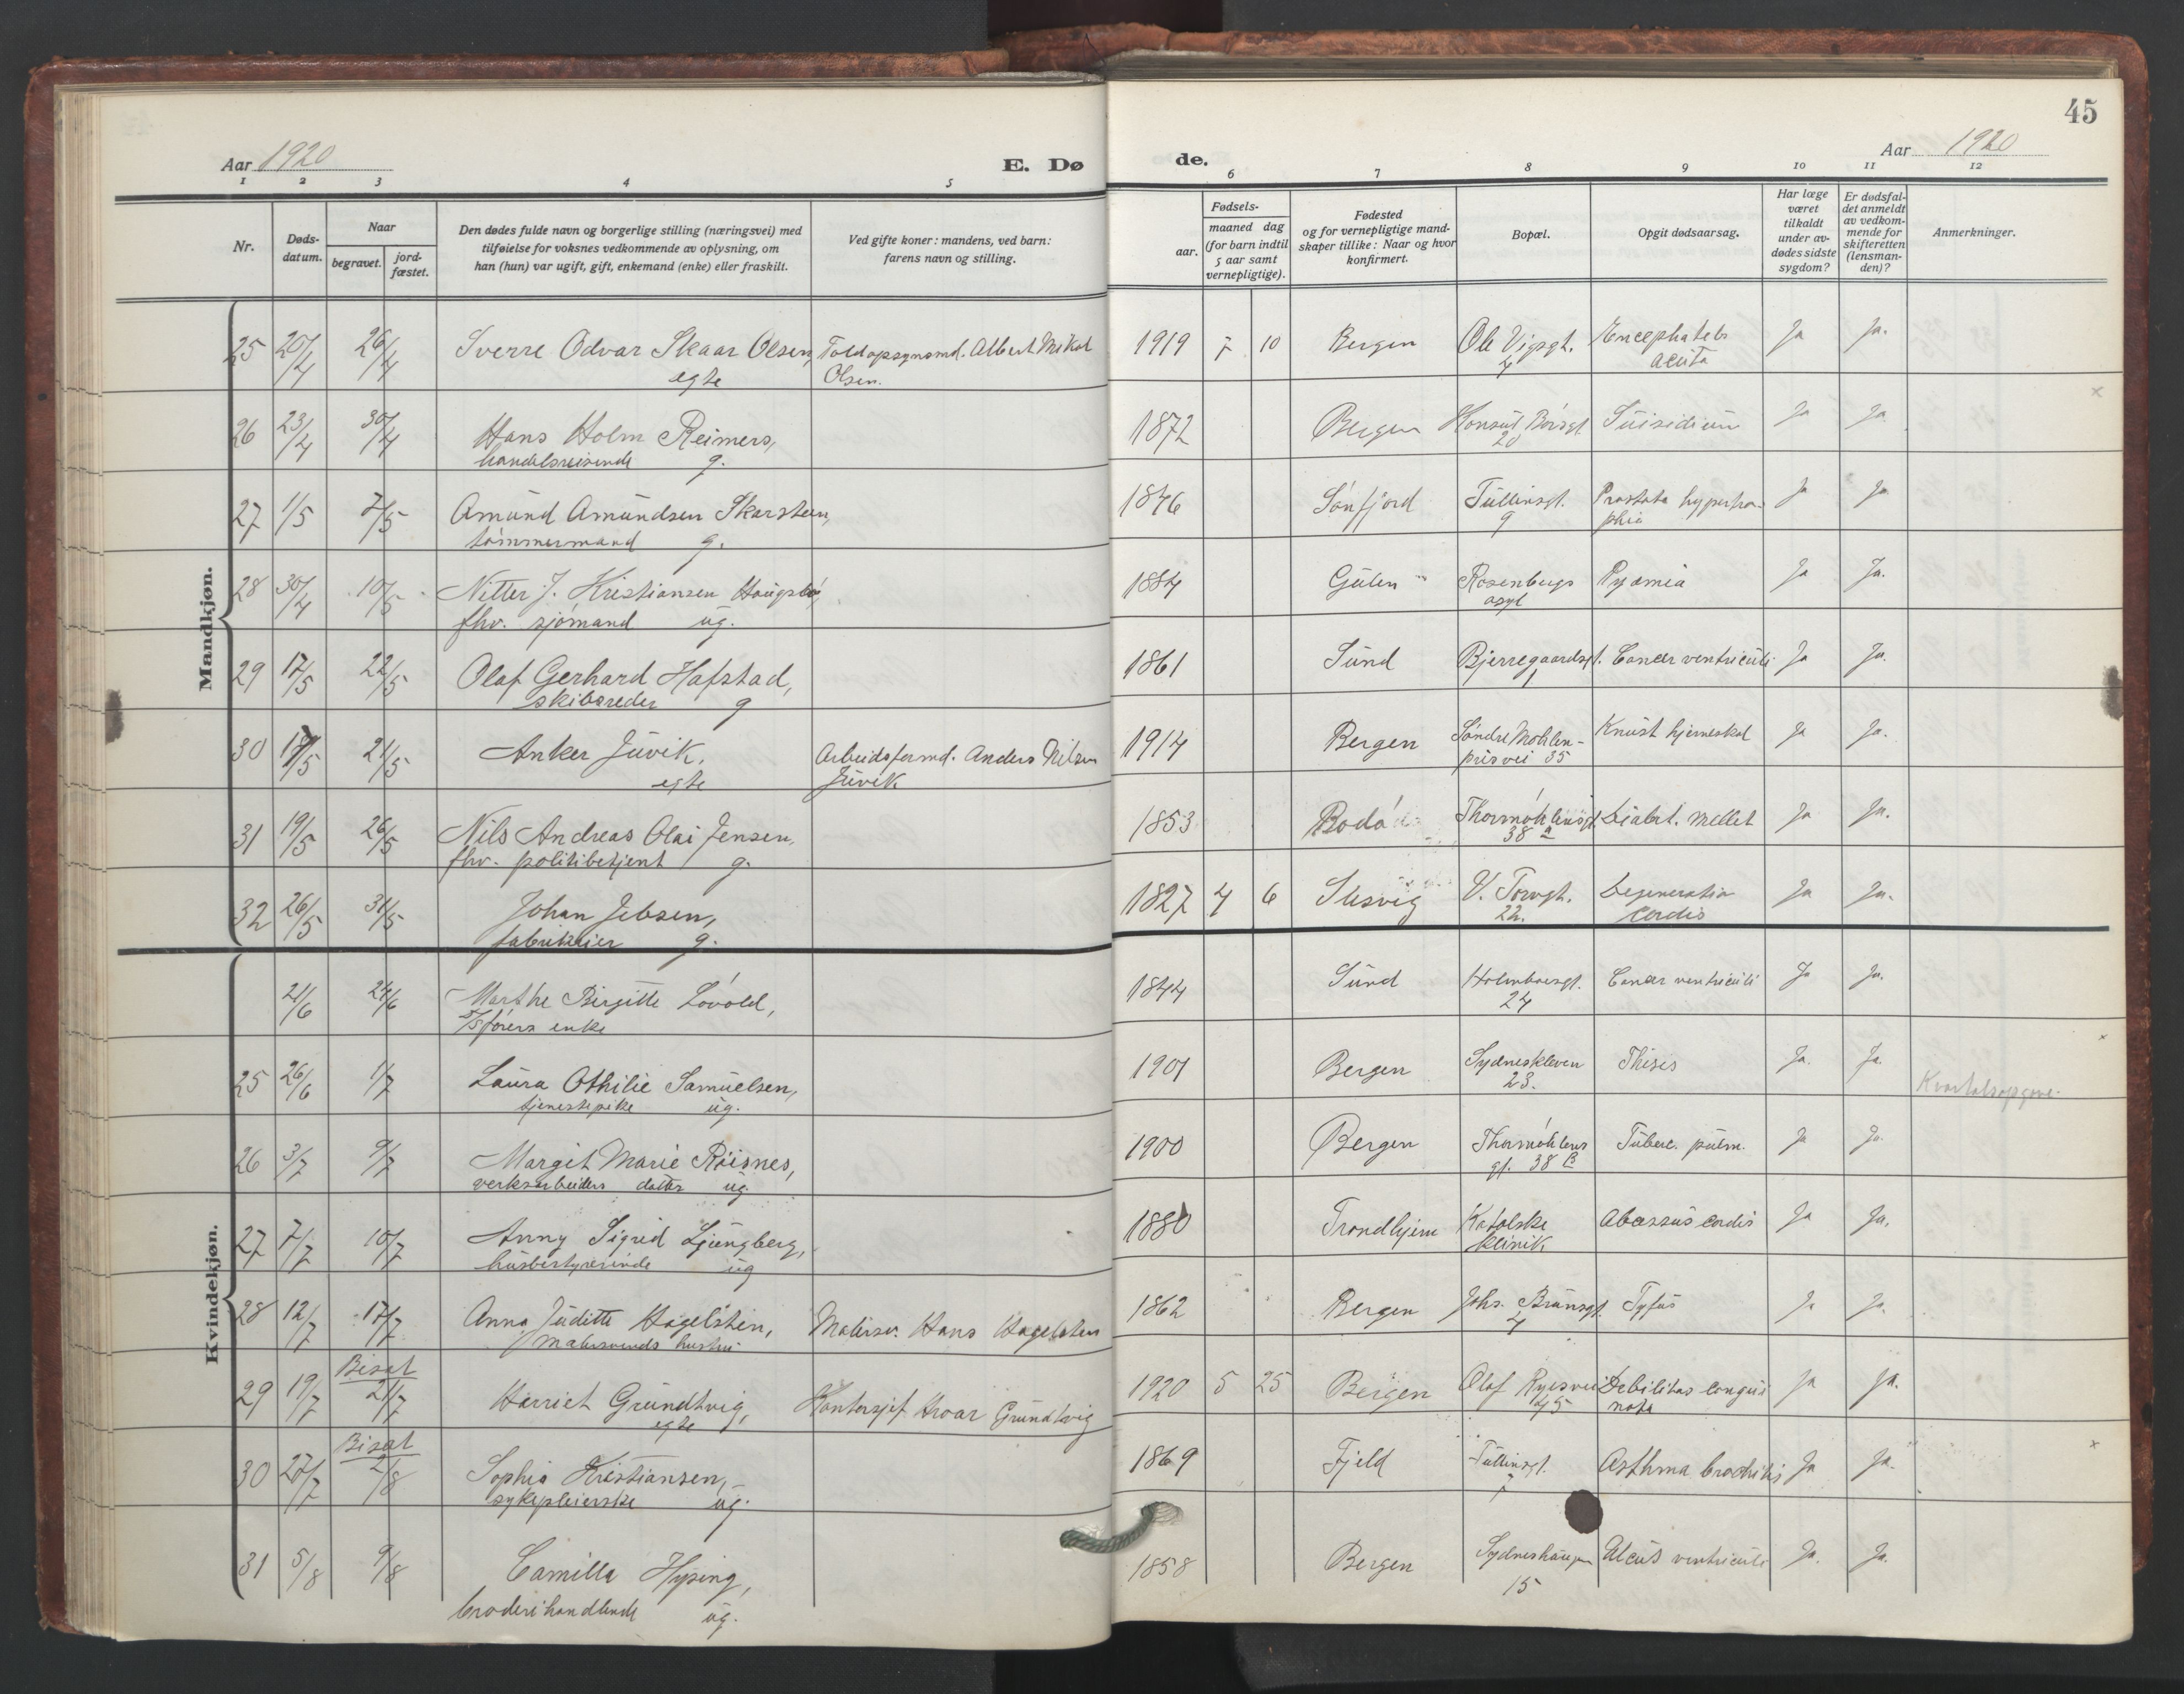 45
Aar 1920
E. Dø
de.
Aar 1920
1 2 3 4 5 6 7 8 9 10 11 12
Nr.
Døds-
datum.
Naar
begravet.
jord-
fæstet.
Den dødes fulde navn og borgerlige stilling (næringsvei) med
tilføielse for voksnes vedkommende av oplysning, om
han (hun) var ugift, gift, enkemand (enke) eller fraskilt.
Ved gifte koner: mandens, ved barn:
farens navn og stilling.
Fødsels-
aar.
maaned dag
(for barn indtil
5 aar samt
vernepligtige).
Fødested
og for vernepligtige mand-
skaper tillike: Naar og hvor
konfirmert.
Bopæl.
Opgit dødsaarsag.
Har læge
været
tilkaldt
under av-
dødes sidste
sygdom?
Er dødsfal-
det anmeldt
av vedkom-
mende for
skifteretten
(lensman-
den)?
Anmerkninger.
Mandkjøn.
25 20/4 26/4 Sverre Odvar Skaar Olsen, Toldopsynsmd. Albert Mikal 1919 7 10 Bergen Ole Vigsgt. Encephatels Ja Ja.
egte Olsen. 4 acuta
26 23/4 30/4 Hans Holm Reimers, 1872 Bergen Konsul Børsgt. Suisidium Ja Ja
handelsreisende g. 20
27 1/5 7/5 Amund Amundsen Skarsteen, 1846 Sönfjord Tullinsgt. Prostata hypertro- Ja Ja
tømmermand g. 9 phia
28 30/4 10/5 Nitter J. Kristiansen Haugsbø, 1884 Gulen Rosenbergs Pyæmia Ja Ja.
fhv. sjømand ug. asyl
29 17/5 22/5 Olaf Gerhard Hafstad, 1861 Sund Bjerregaardsgt. Cancer ventriculi Ja Ja.
skibsreder g 1
30 17/5 21/5 Anker Juvik, Arbeidsformd. Anders Nilsen 1914 Bergen Søndre Møhlen- Knust hjerneskal Ja Ja.
egte Juvik prisvei 35
31 19/5 26/5 Nils Andreas Olai Jensen, 1853 Bodø Thormøhlensgt. Diabet. mellet Ja Ja.
fhv. politibetjent g. 38 a
32 26/5 31/5 Johan Jebsen, 1827 4 6 Slesvig V. Torvgt. Degeneratia Ja Ja.
fabrikeier g. 22. cordis
Kvindekjøn.
21/6 24/6 Marthe Birgitte Løvold, 1844 Sund Holmboesgt. Cancer ventriculi Ja Ja.
S/S førers enke 24
25 26/6 1/7 Laura Othilie Samuelsen, 1901 Bergen Sydneskleven Thisis Ja. Ja.
tjenestepike ug. 23. Kvartalsopgave.
26 3/7 9/7 Margit Marie Røisnes, 1900 Bergen Thormøhlens Tuberc. pulm. Ja Ja.
verksarbeiders datter ug. gt. 38 B
27 7/7 10/7 Anny Sigrid Ljungberg, 1880 Trondhjem Katolske Abscessus cordis Ja Ja.
husbestyrerinde ug klinik
28 12/7 17/7 Anna Juditte Hagelsten, Malersv. Hans Hagelsten 1862 Bergen Johs. Brunsgt. Tyfus Ja Ja.
malersvends hustru 4
Bisat
29 19/7 21/7 Harriet Grundtvig, Kontorsjef Hroar Grundtvig 1920 5 25 Bergen Olaf Ryesvei Debilitas congui Ja Ja.
egte 45 nata
Bisat
30 27/7 2/8 Sophia Kristiansen, 1869 Fjeld Tullinsgt. Asthma brochitis Ja Ja.
sykepleierske ug.
31 5/8 9/8 Camilla Hysing, 1858 Bergen Sydneshaugen Ulcus ventriculi Ja. Ja.
broderihandlende ug. 15